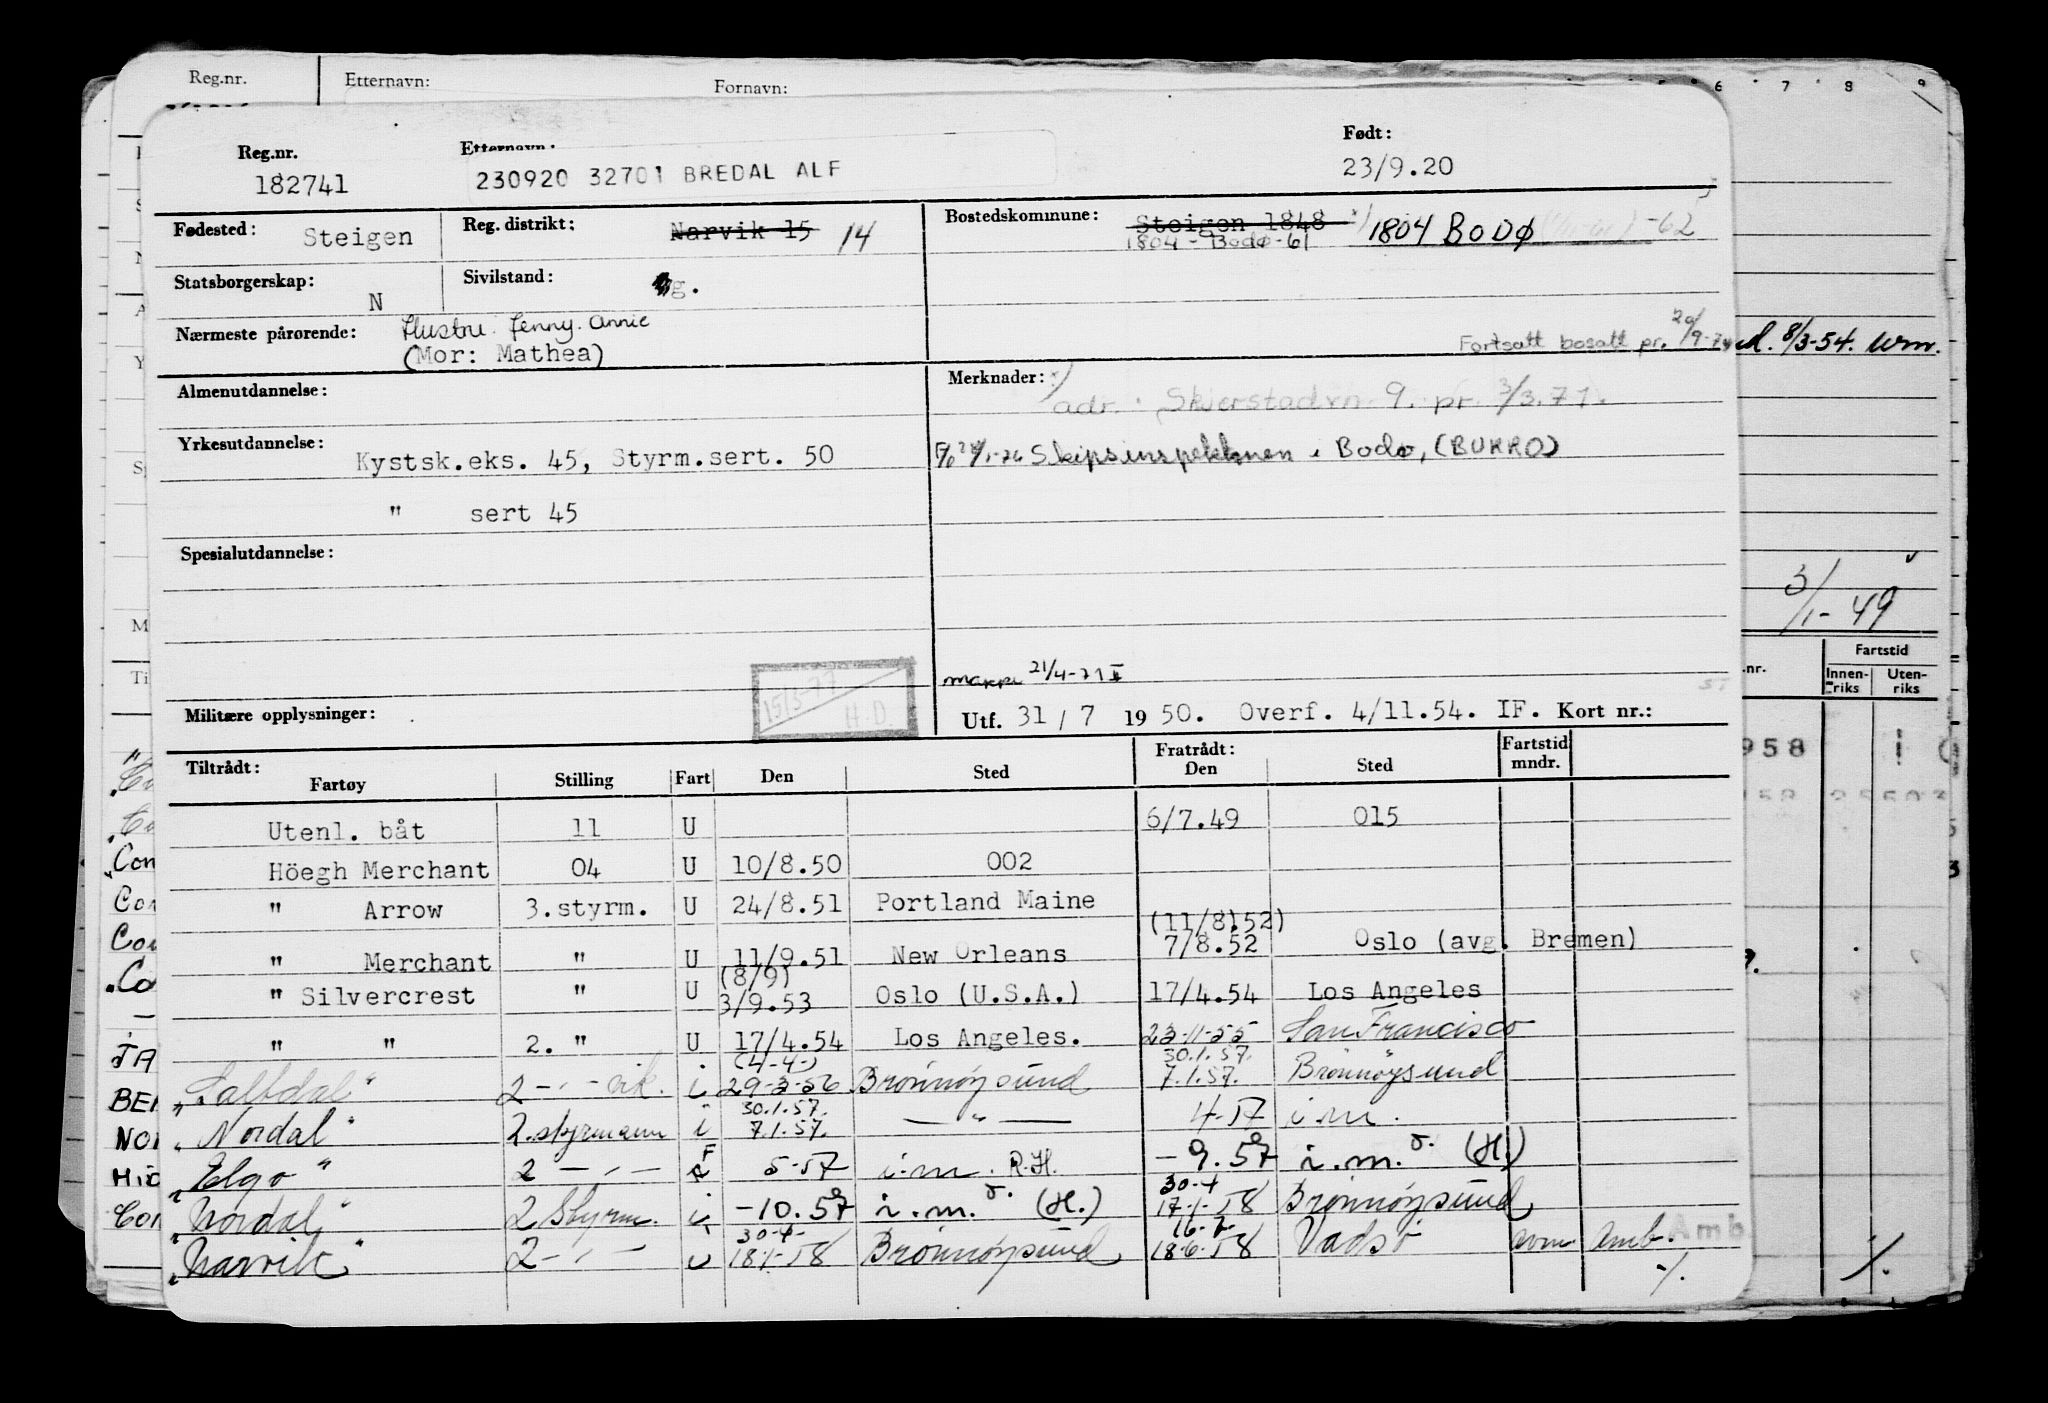 Reg.nr. Etternavn: Fornavn: 6 7 8 9
Reg.nr. Etternavn: Født:
182741 230920 32701 BREDAL ALF 23/9.20
Fødested: Steigen Reg. distrikt: Narvik 15 14 Bostedskommune: Steigen 1848 x/ 1804 BODØ -62
1804 - Bodø-61
Statsborgerskap: N Sivilstand: g.
Nærmeste pårørende: Hustru Jenny. Annie
(Mor: Mathea)
Fortsatt bosatt pr. 20/9-74 d. 8/3-54. wm.
Almenutdannelse: Merknader: x)
adr. Skjerstadvn 9. pr. 3/3.71.
Yrkesutdannelse: Kystsk.eks. 45, Styrm.sert. 50 Skipsinspektionen i Bodø, (BURRO)
" sert 45
Spesialutdannelse:
3/1-49
21/4-71
15/3-77 H.D.
Militære opplysninger: Utf. 31/7 1950. Overf. 4/11.54. IF. Kort nr.:
nr. Fartstid
Innenriks Utenriks
Tiltrådt: Fratrådt:
Fartøy Stilling Fart Den Sted Den Sted Fartstid mndr.
958
Utenl. båt 11 U 6/7.49 015
Höegh Merchant 04 U 10/8.50 002
" Arrow 3.styrm. U 24/8.51 Portland Maine
(11/8.52)
" Merchant " U 11/9.51 New Orleans 7/8.52 Oslo (avg. Bremen)
(8/9)
" Silvercrest " U 3/9.53 Oslo (U.S.A.) 17/4.54 Los Angeles
" " 2. " U 17/4.54 Los Angeles. 23-11-55 San Francisco
(4-4-) 30.1.57.
"Saltdal" 2 - " - vik. i 29-3-56 Brønnøysund 7.1.57. Brønnøysund
30.1.57.
"Nordal" 2.styrmann i 7.1.57. — " — 4-57 i.m.
"Elgo" 2 — " — F 5-57 i.m. R.H. -9.57 i.m. (H.)
30-4
"Nordal" 2 Styrm. i -10.57 i.m. (H.) 17-1-58 Brønnøysund
30-4- 16-7-
"Narvik" 2 - " - U 18-1-58 Brønnøysund 18-6-58 Vadsø Amb. Amb.